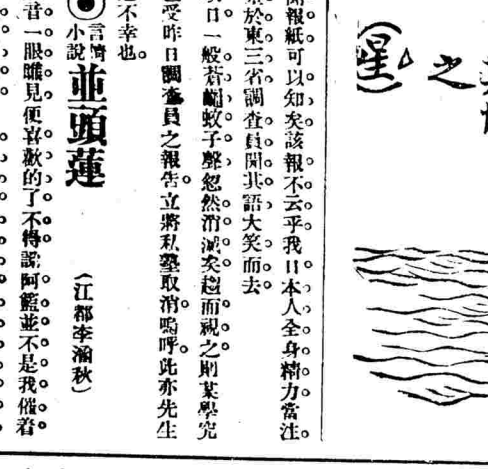 之
(星)
閱報紙可以知矣該報不云乎我日本人全身精力當注
於東三省調查員聞其語大笑而去
日一般蒼蠅蚊子聲忽然消滅矣趨而視之則某學究
受昨日調查員之報告立將私塾取消嗚呼此亦先生
不幸也
言情小說 並頭蓮 (江都李涵秋)
一眼瞧見便喜歡的了不得說阿籃並不是我催着